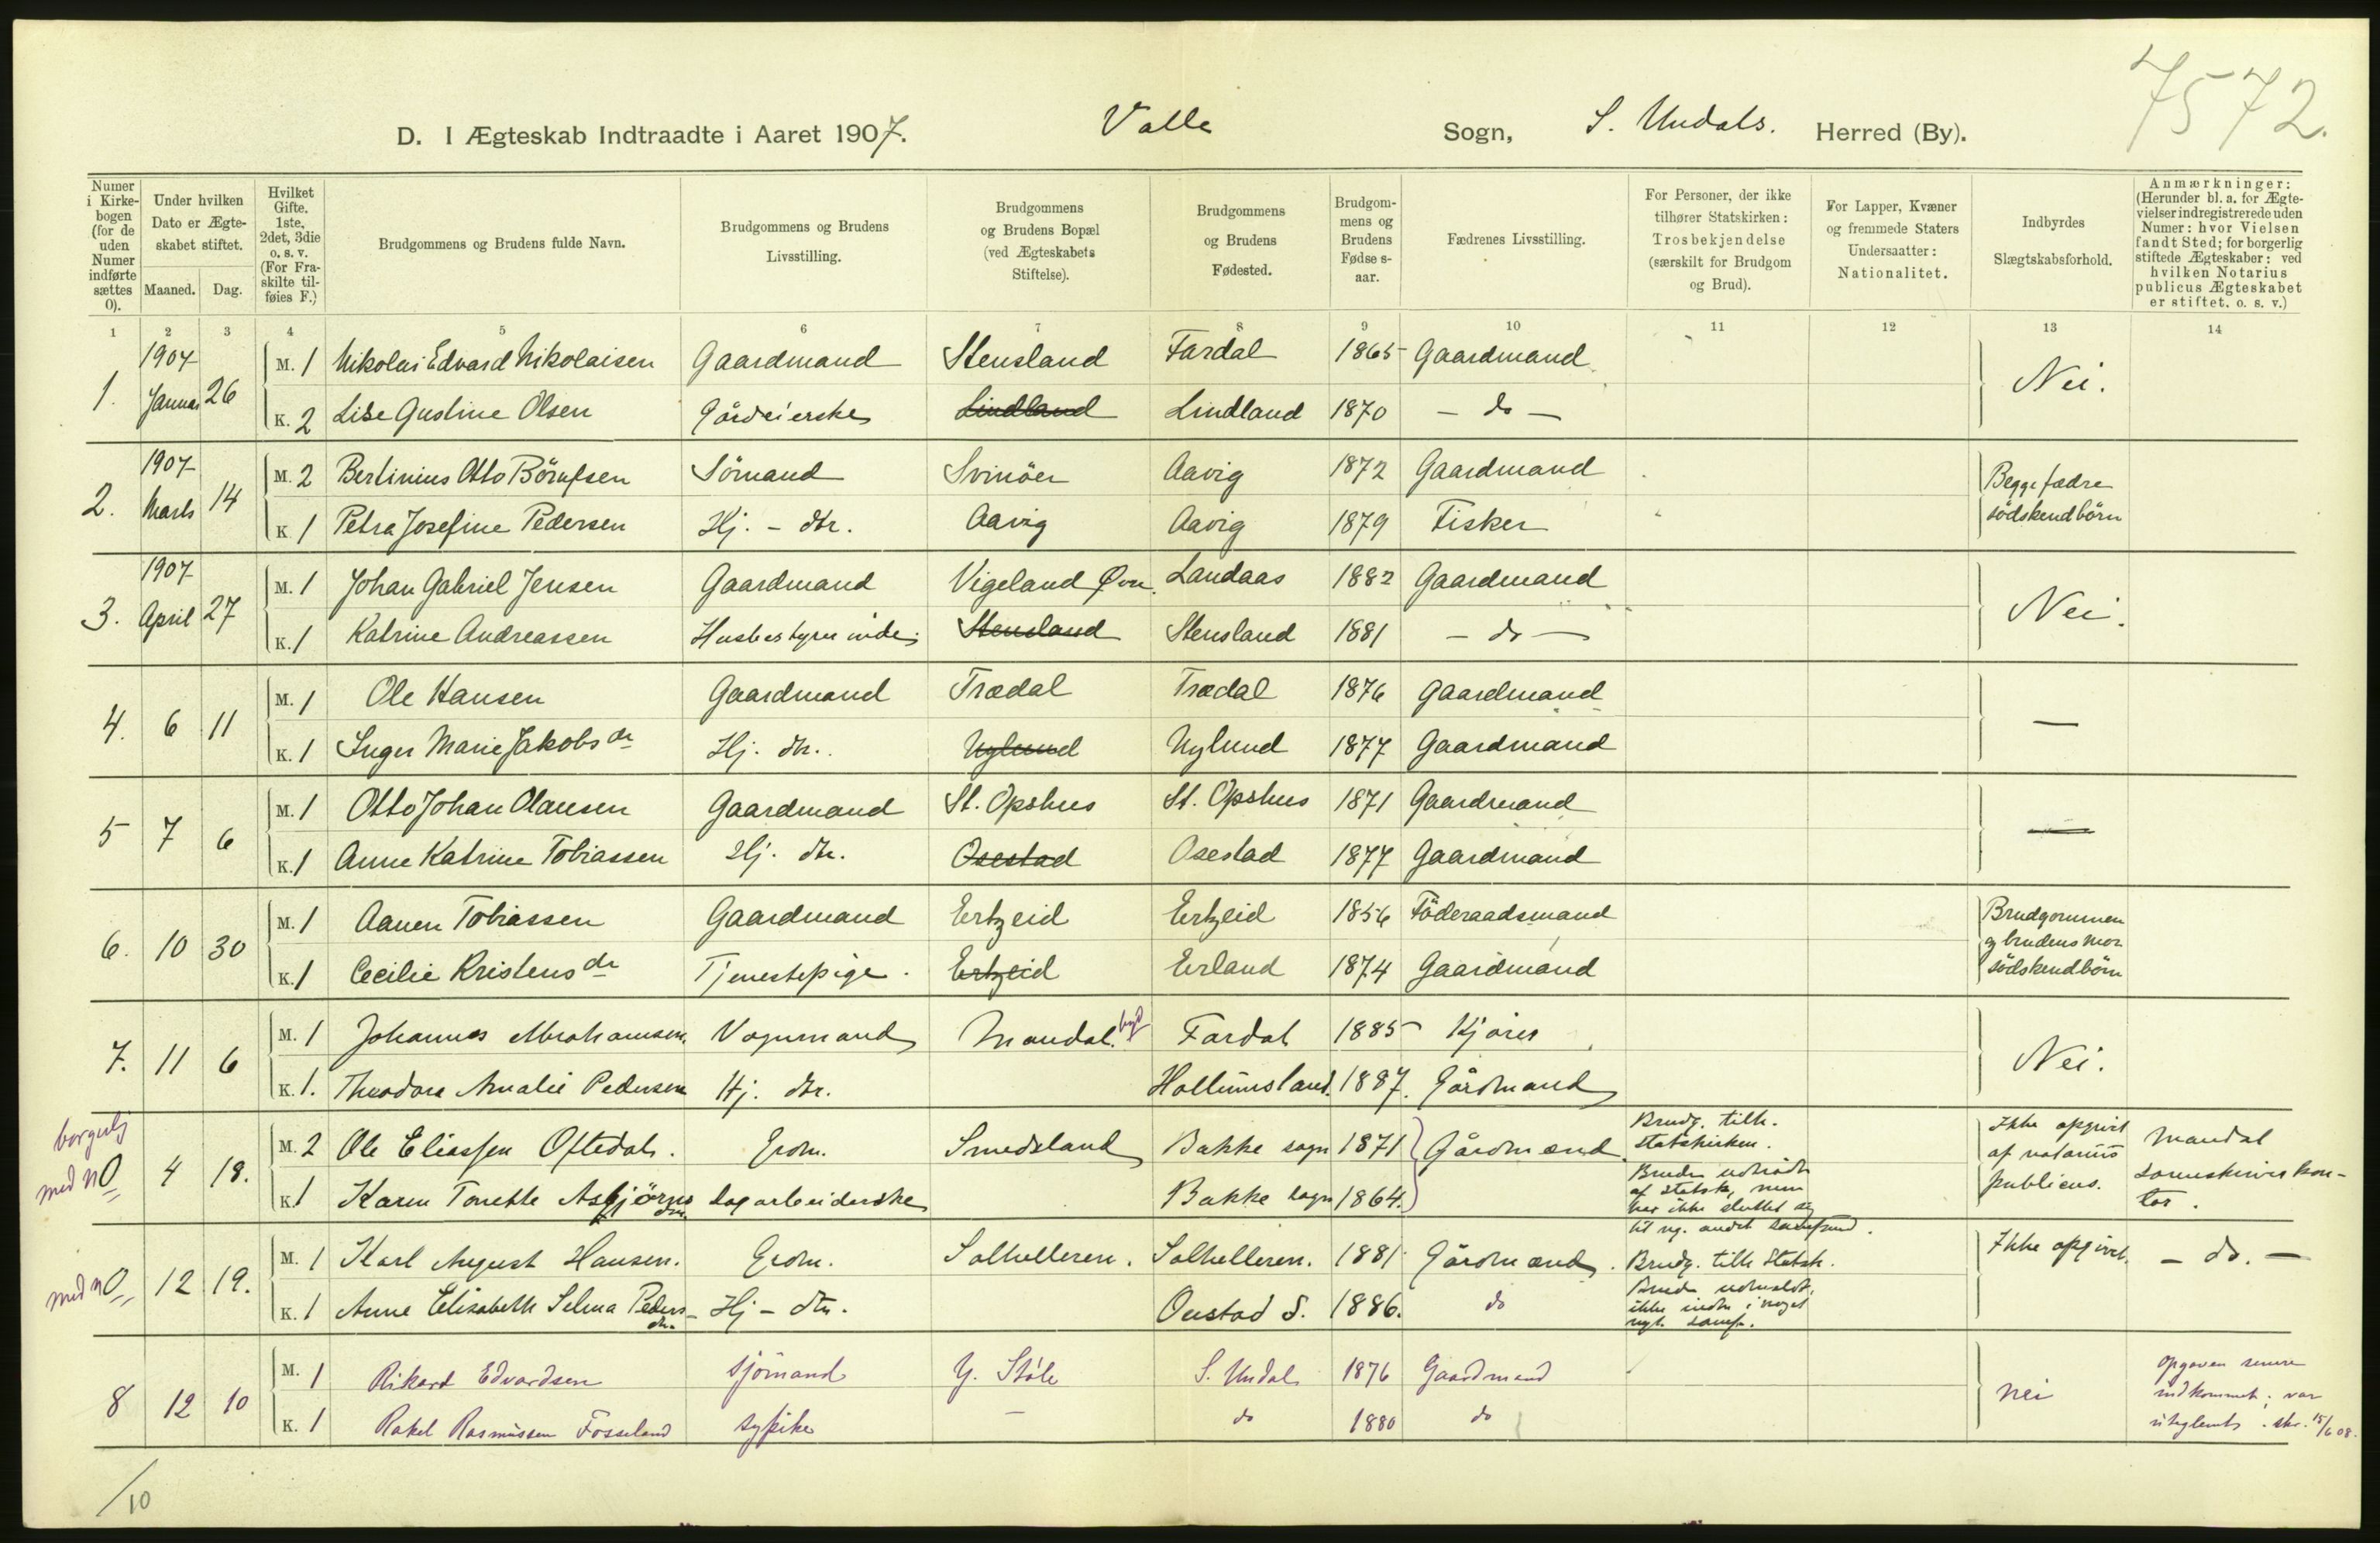 7572.
D. I Ægteskab Indtraadte i Aaret 1907. Valle Sogn, S. Undals. Herred (By).
Numer i Kirkebogen (for de uden Numer indførte sættes 0).
Under hvilken Dato er Ægteskabet stiftet.
Maaned. Dag.
Hvilket Gifte. 1ste, 2det, 3die o. s. v. (For Fraskilte tilføies F.)
Brudgommens og Brudens fulde Navn.
Brudgommens og Brudens Livsstilling.
Brudgommens og Brudens Bopæl (ved Ægteskabets Stiftelse).
Brudgommens og Brudens Fødested.
Brudgommens og Brudens Fødselsaar.
Fædrenes Livsstilling.
For Personer, der ikke tilhører Statskirken: Trosbekjendelse (særskilt for Brudgom og Brud).
For Lapper, Kvæner og fremmede Staters Undersaatter: Nationalitet.
Indbyrdes Slægtskabsforhold.
Anmærkninger: (Herunder bl. a. for Ægtevielser indregistrerede uden Numer: hvor Vielsen fandt Sted; for borgerlig stiftede Ægteskaber: ved hvilken Notarius publicus Ægteskabet er stiftet. o. s. v.)
1 2 3 4 5 6 7 8 9 10 11 12 13 14
1. 1907 Januar 26 M. 1 Nikolai Edvard Nikolaisen Gaardmand Stensland Fardal 1865 Gaardmand Nei.
K. 2 Lise Gustine Olsen Gårdeierske Lindland Lindland 1870 - do -
2. 1907 Marts 14 M. 2 Bertinius Otto Börufsen Sömand Svinöer Aavig 1872 Gaardmand Begge fædre
K 1 Petra Josefine Pedersen Hj. - dtr. Aavig Aavig 1879 Fisker södskendbörn
3. 1907 April 27 M. 1 Johan Gabriel Jensen Gaardmand Vigeland Øvr. Landaas 1882 Gaardmand Nei.
K. 1 Katrine Andreassen Husbestyrerinde Stensland Stensland 1881 - do -
4. 6 11 M. 1 Ole Hansen Gaardmand Trædal Trædal 1876 Gaardmand —
K. 1 Inger Marie Jakobsdr Hj. dtr. Nylund Nylund 1877 Gaardmand
5 7 6 M. 1 Otto Johan Olausen Gaardmand St. Opshus St. Opshus 1871 Gaardmand —
K. 1 Anne Katrine Tobiassen Hj. dtr. Osestad Osestad 1877 Gaardmand
6. 10 30 M. 1 Aanen Tobiassen Gaardmand Ertzeid Ertzeid 1856 Föderaadsmand Brudgommen
og brudens mor
K. 1 Cecilie Kristensdr Tjenestepige. Ertzeid Erland 1874 Gaardmand södskendbörn
7. 11 6 M. 1 Johannes Abrahamsen. Vognmand Mandal. by Fardal 1885 Kjører Nei.
K. 1. Theodora Amalie Pedersen Hj. dtr. Hollumsland. 1887. Gårdmand
borgerlj
med no 4 18. M. 2 Ole Eliassen Oftedal. Grdm. Smedsland Bakke sogn 1871 Gårdmænd Brudg. tilh. statskirken. Ikke opgivet af notarius publicus. Mandal sorenskriverkontor.
K. 1 Karen Tonette Asbjörnsdtr. dagarbeiderske Bakke sogn 1864. Bruden udtrådt af statsk, men har ikke sluttet sig til ng. andet samfund.
med no 12 19. M. 1 Karl August Hansen. Grdm. Solhelleren. Solhelleren. 1881 Gårdmænd. Brudg. tilh Statsk. Ikke opgivet. - do. -
K. 1 Anne Elisabeth Selma Pedersdtr. Hj - dtr. Oustad S. 1886. do Brud udmeldt, ikke indtr i noget nyt samf.
8 12 10 M. 1 Rikard Edvardsen Sjömand Y. Ståle S. Undal 1876 Gaardmand nei Opgaven senere indkommet; var uteglemt. skr. 15/6 08.
K. 1 Rakel Rasmussen Fosseland sypike - do 1880 do
/10